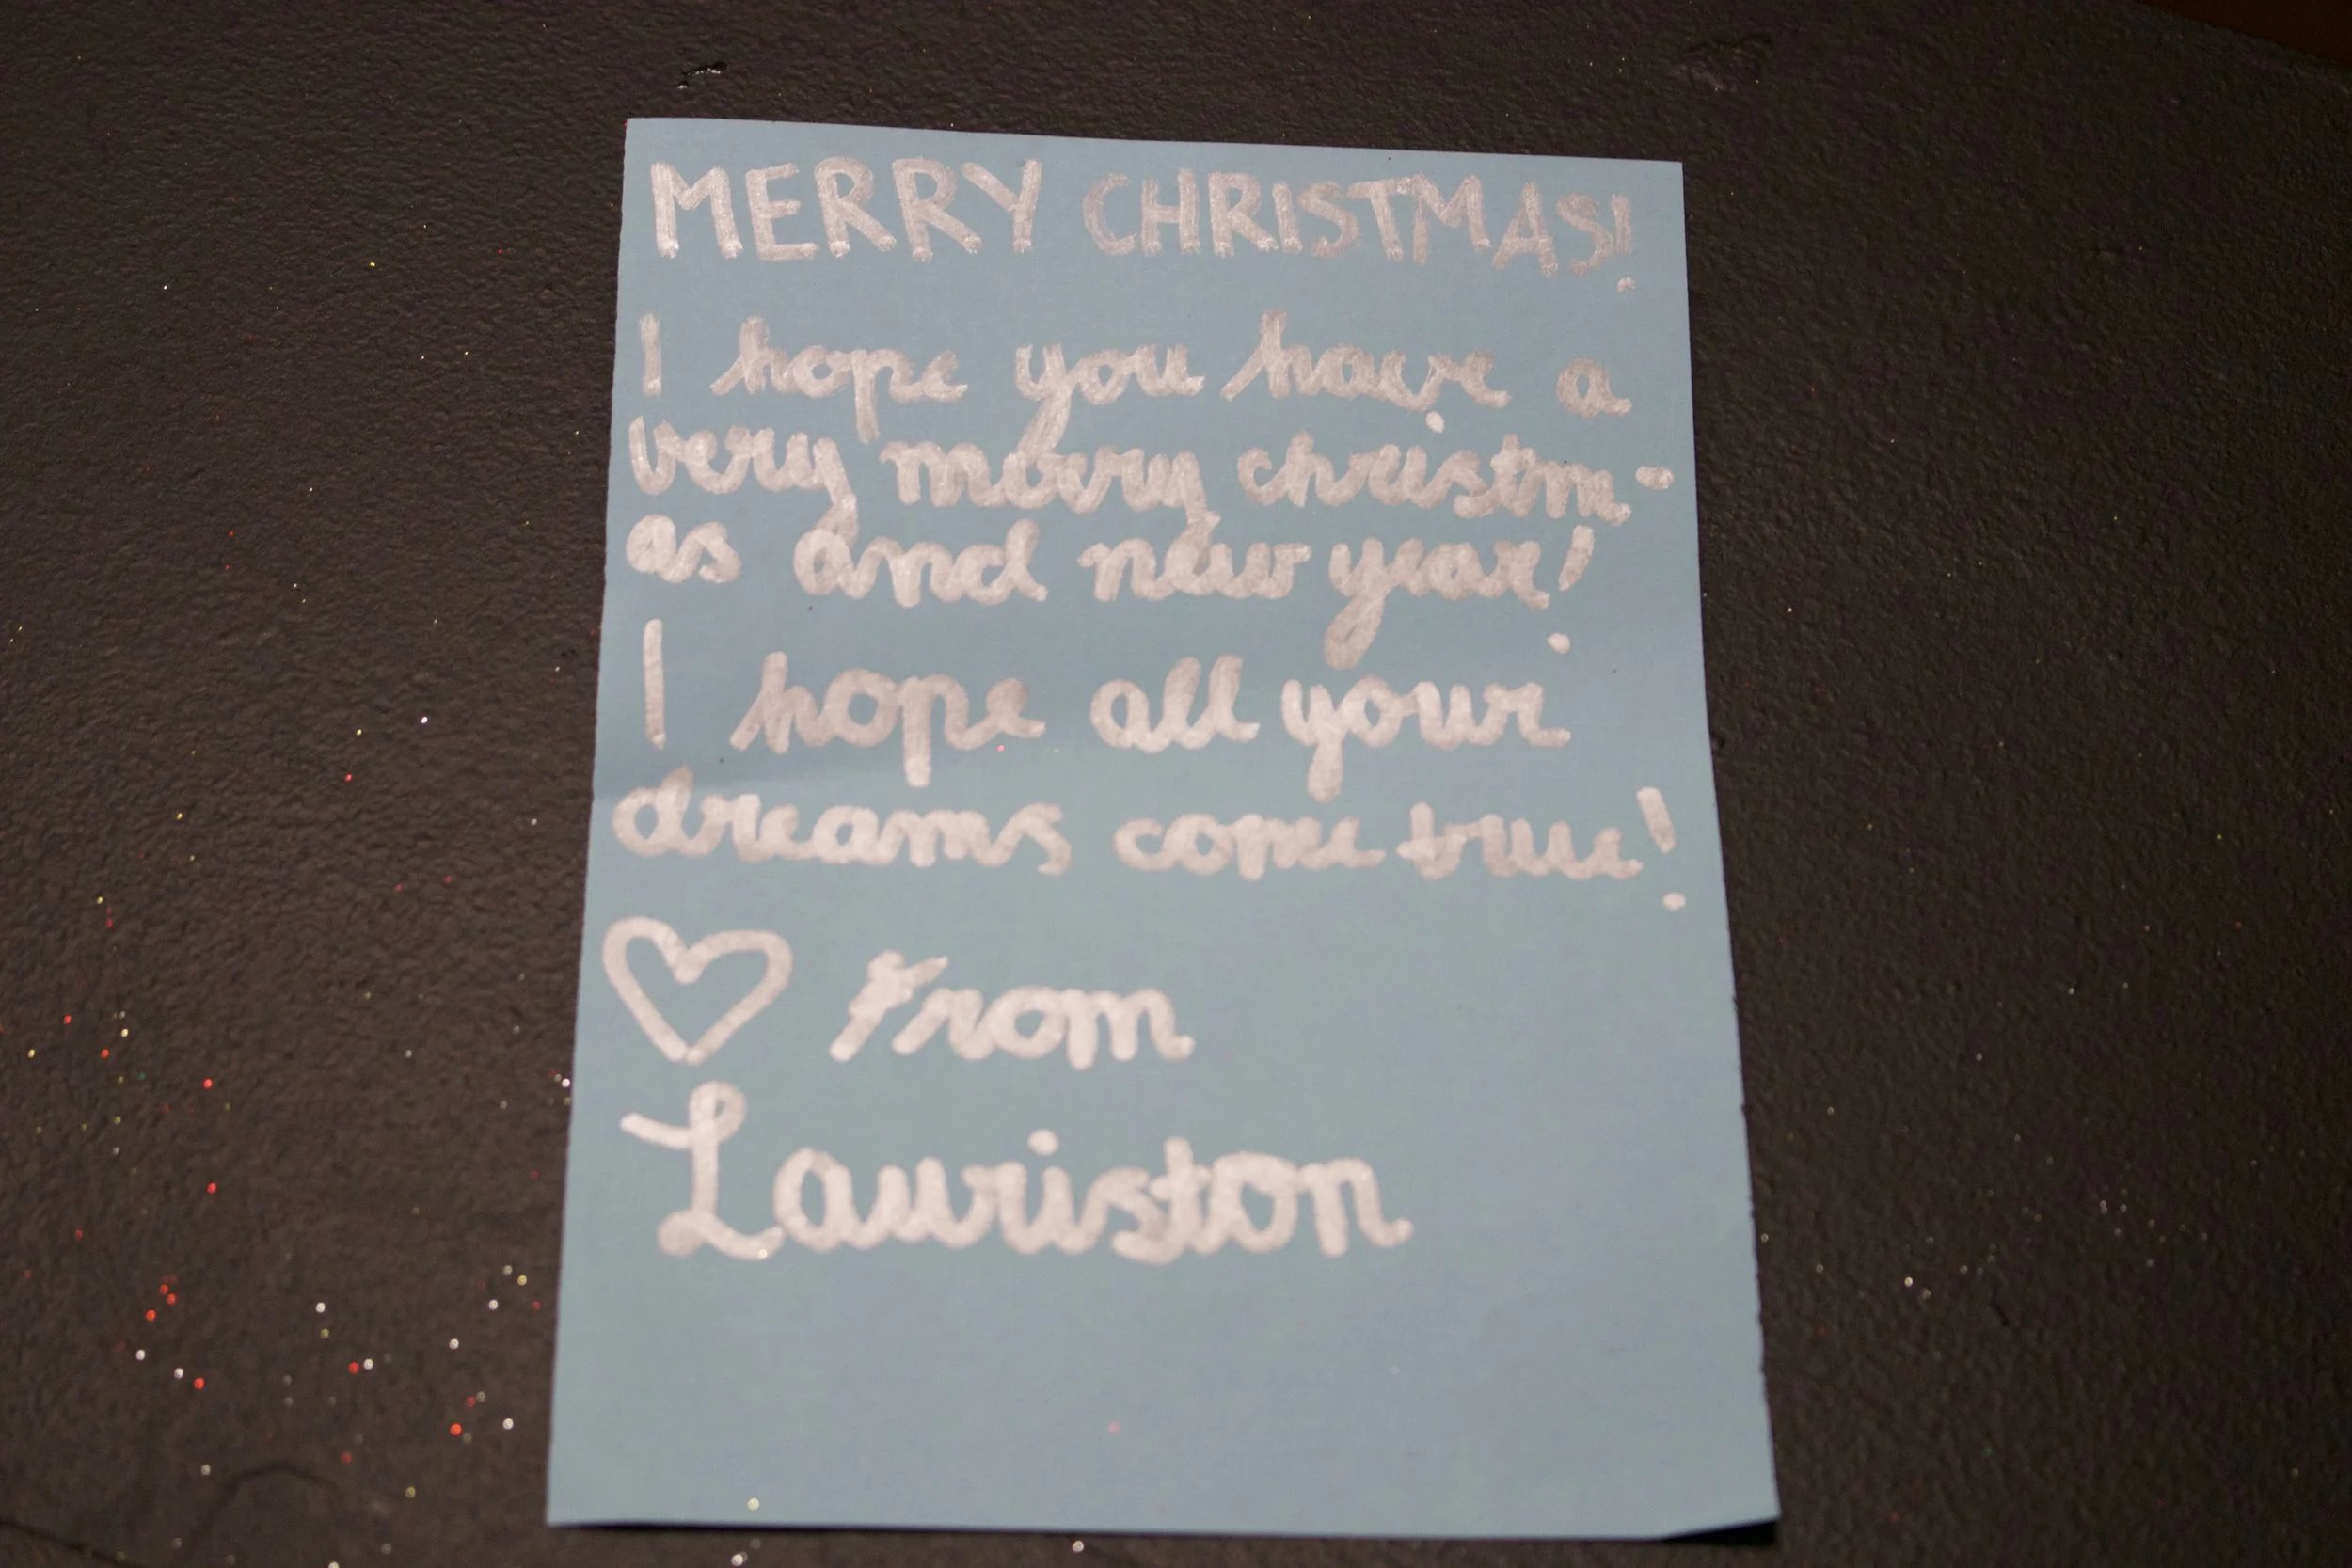 MERRY CHRISTMAS!
I hope you have a
very merry christm-
as and new year!
I hope all your
dreams come true!
♡ from
Lauriston